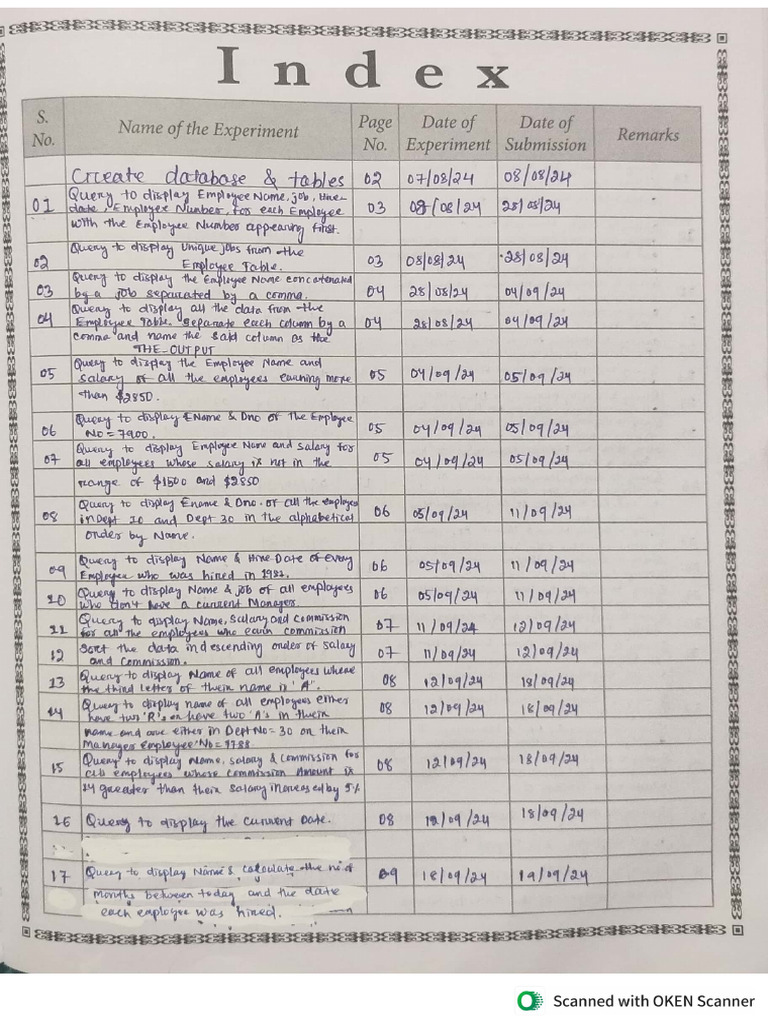 Index
S. No. Name of the Experiment Page No. Date of Experiment Date of Submission Remarks
Create database & tables 02 07/08/24 08/08/24
01 Query to display Employee Name, job, Hire- 03 08/08/24 28/08/24
date, Employee Number, for each Employee
with the Employee Number appearing first.
02 Query to display Unique jobs from the 03 08/08/24 28/08/24
Employee Table.
03 Query to display the Employee Name concatenated 04 28/08/24 04/09/24
by a job separated by a comma.
04 Query to display all the data from the 04 28/08/24 04/09/24
Employee Table. Separate each column by a
comma and name the said column as the
THE-OUTPUT
05 Query to display the Employee Name and 05 04/09/24 05/09/24
salary of all the employees earning more
than $2850.
06 Query to display EName & Dno of The Employee 05 04/09/24 05/09/24
No = 7900.
07 Query to display Employee Name and salary for 05 04/09/24 05/09/24
all employees whose salary is not in the
range of $1500 and $2850
08 Query to display Ename & Dno. of all the employees 06 05/09/24 11/09/24
in Dept 10 and Dept 30 in the alphabetical
order by Name.
09 Query to display Name & Hire Date of Every 06 05/09/24 11/09/24
Employee who was hired in 1981.
10 Query to display Name & job of all employees 06 05/09/24 11/09/24
who don't have a current Manager.
11 Query to display Name, Salary and Commission 07 11/09/24 12/09/24
for all the employees who earn commission
12 Sort the data in descending order of salary 07 11/09/24 12/09/24
and Commission.
13 Query to display Name of all employees where 08 12/09/24 18/09/24
the third letter of their name is 'A'.
14 Query to display name of all employees either 08 12/09/24 18/09/24
have two 'R's or have two 'A's in their
name and are either in Dept No = 30 or their
Manager Employee No = 7788.
15 Query to display Name, salary & Commission for 08 12/09/24 18/09/24
all employees whose commission Amount is
14 greater than their salary increased by 5%
16 Query to display the current Date. 08 12/09/24 18/09/24
17 Query to display Name & calculate the no. of 09 18/09/24 19/09/24
months between today and the date
each employee was hired.
Scanned with OKEN Scanner